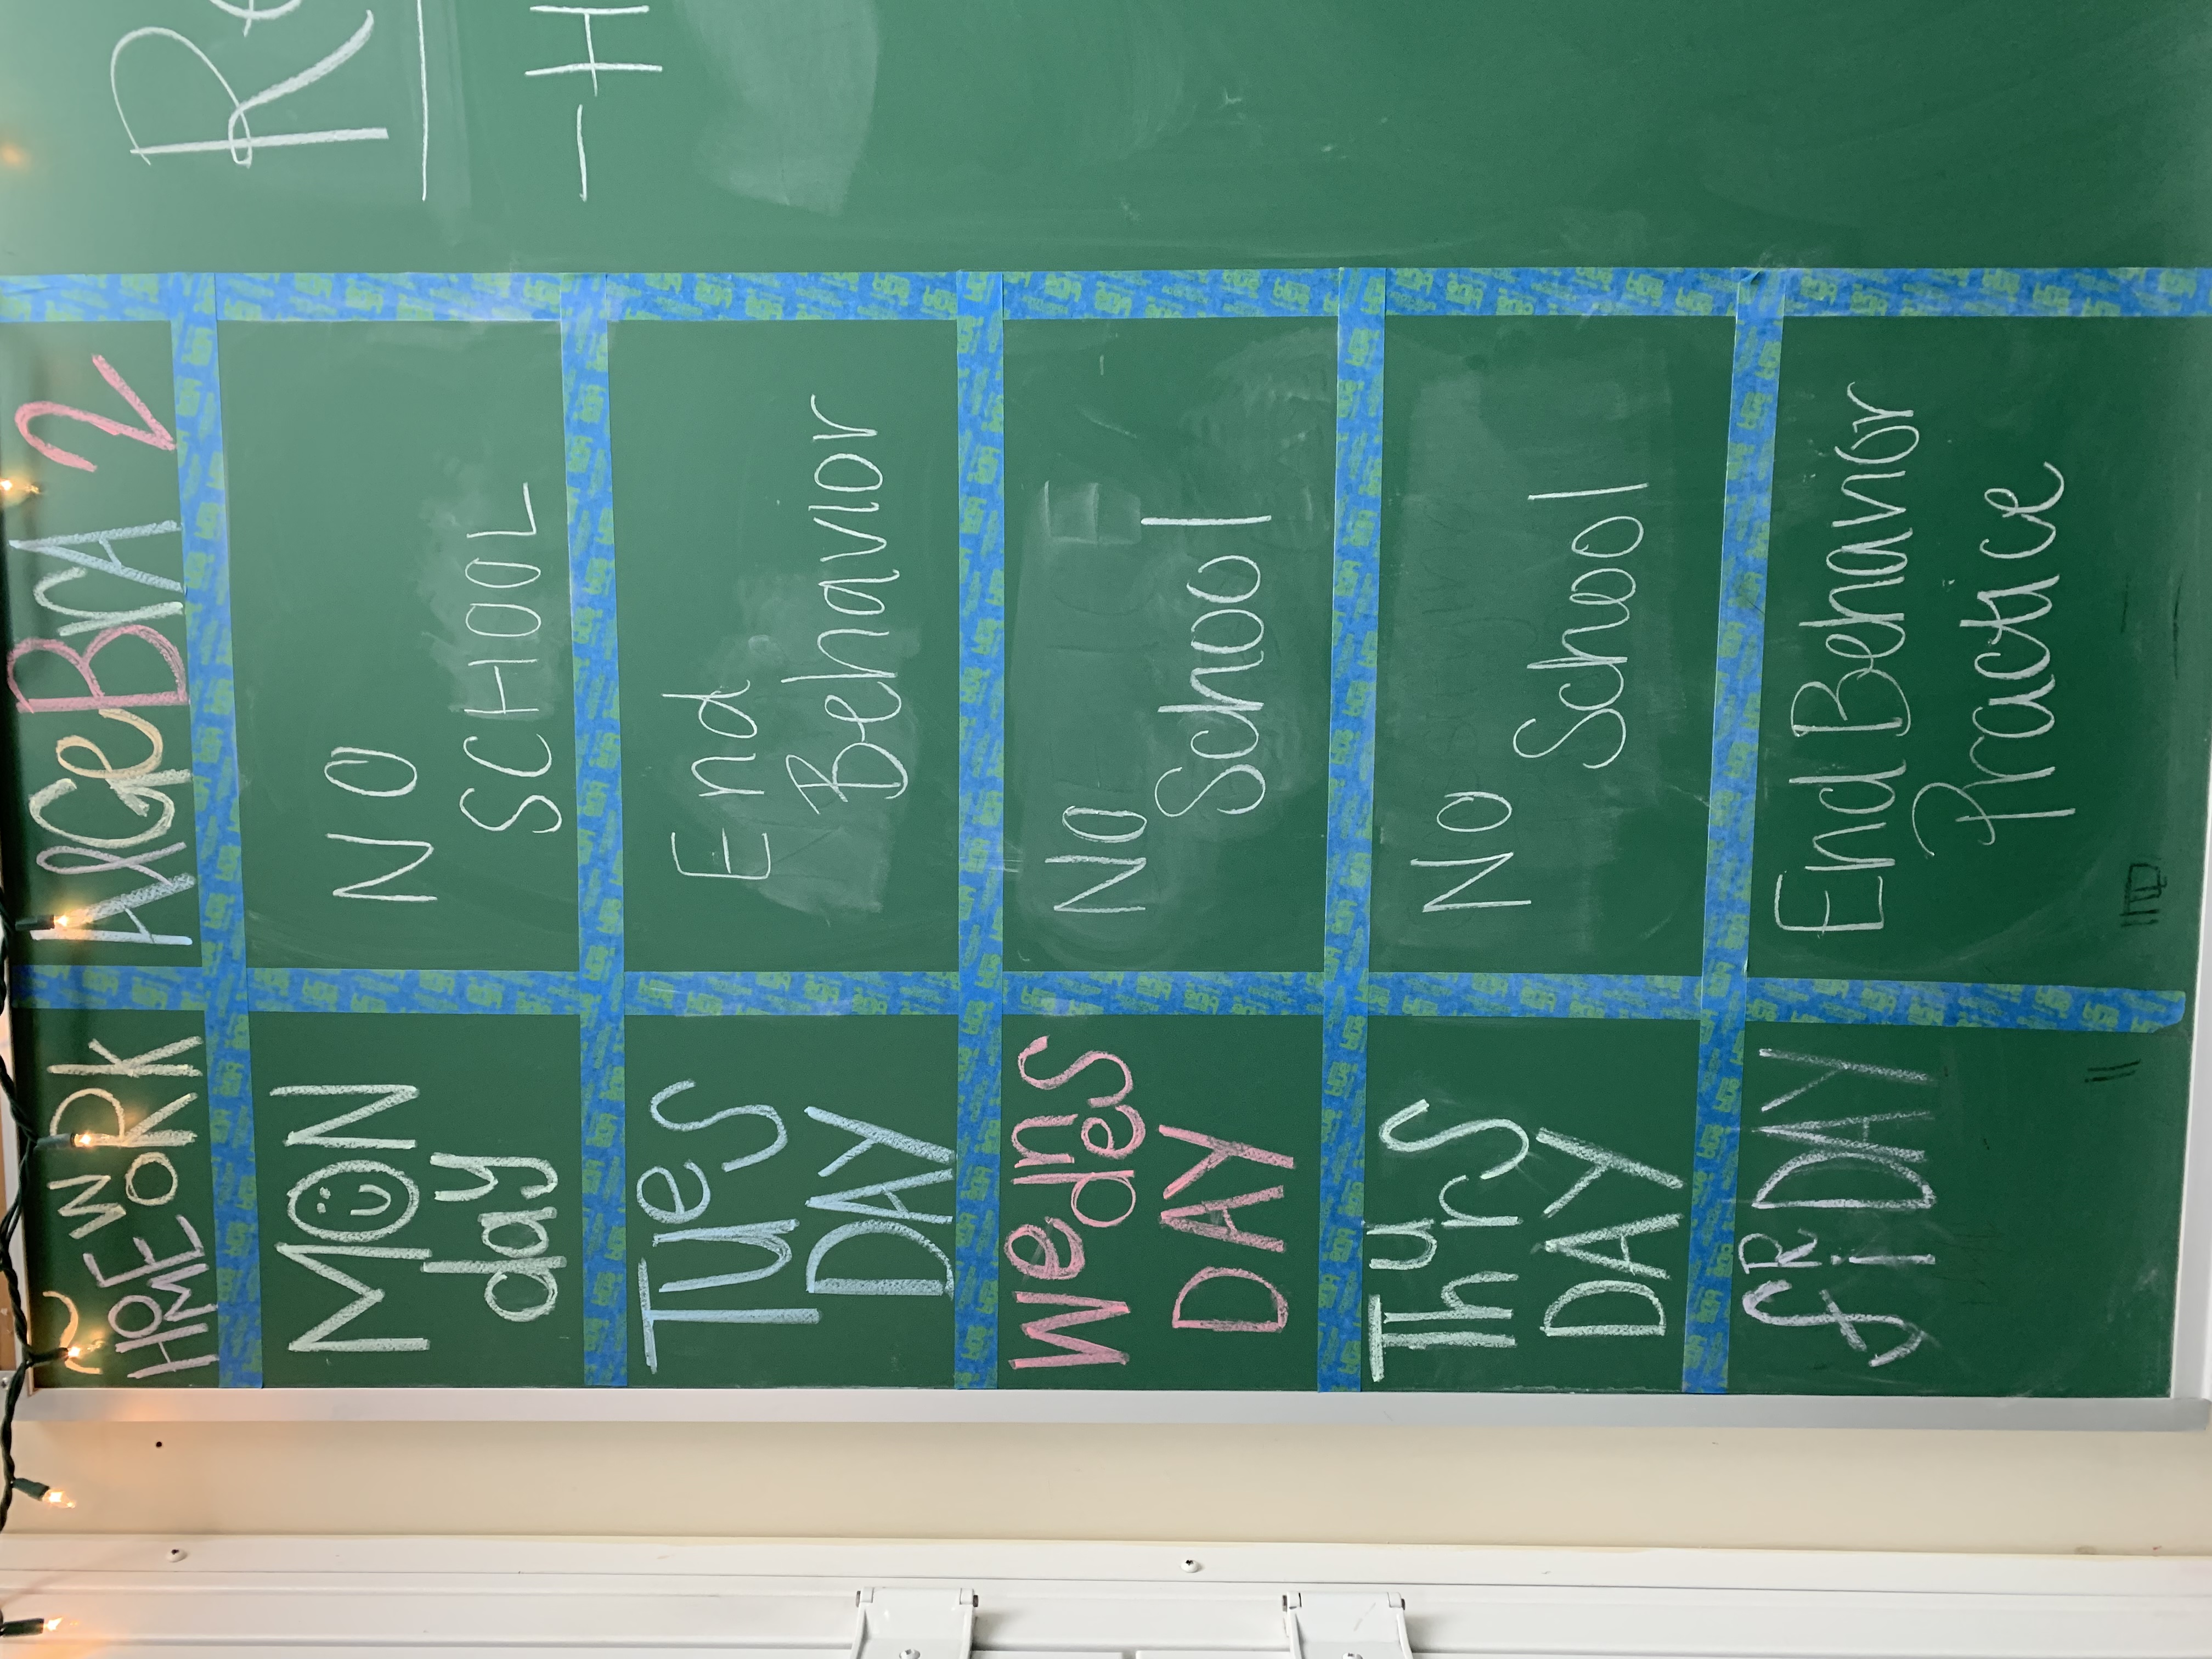 HOMEWORK
ALGeBrA 2
MON
day
NO
SCHOOL
TUES
DAY
End
Behavior
Wednes
DAY
No
School
Thurs
DAY
No
School
FRiDAY
End Behavior
Practice
Re
-H